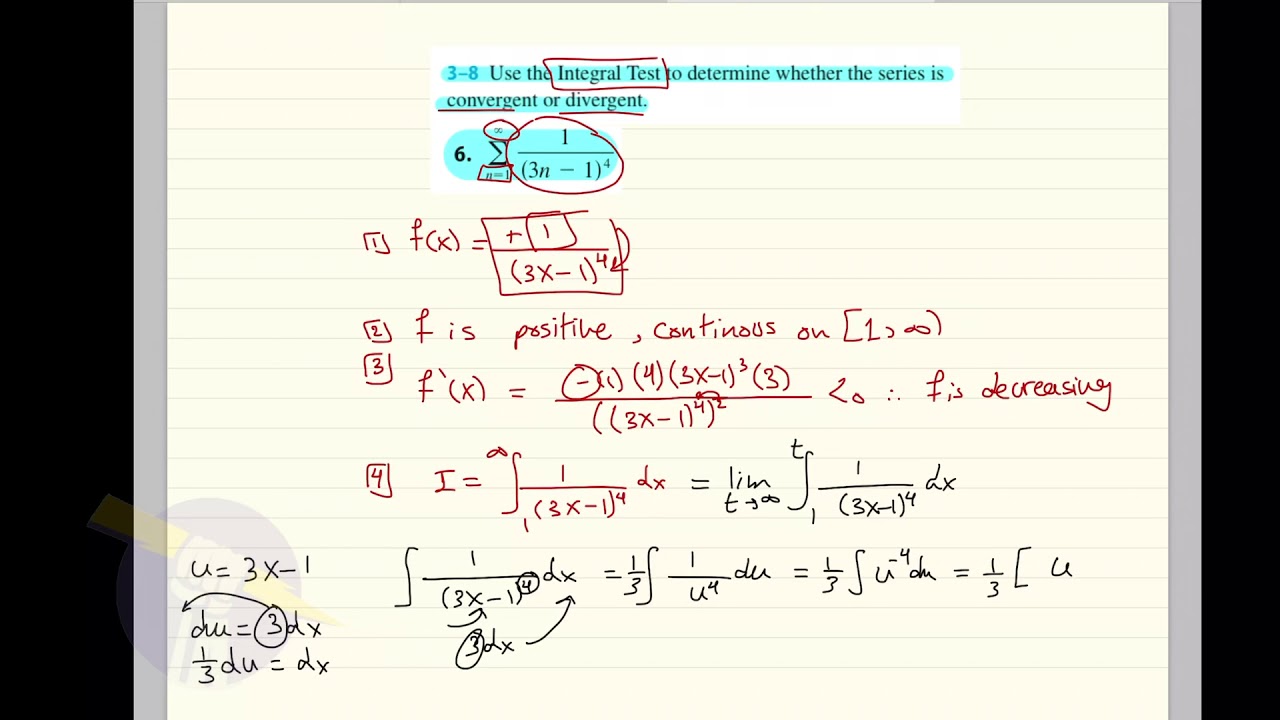 3–8 Use the Integral Test to determine whether the series is
convergent or divergent.
6. ∑_{n=1}^{∞} 1/(3n − 1)^4
[1] f(x) = +1/(3x−1)^4
[2] f is positive, continous on [1,∞)
[3] f'(x) = −(1)(4)(3x−1)^3(3)/((3x−1)^4)^2 <0 ∴ f is decreasing
[4] I = ∫_1^∞ 1/(3x−1)^4 dx = lim_{t→∞} ∫_1^t 1/(3x−1)^4 dx
u = 3x−1 ∫ 1/(3x−1)^4 dx = 1/3 ∫ 1/u^4 du = 1/3 ∫ u^{-4} du = 1/3 [ u
du = 3dx 3dx
1/3 du = dx